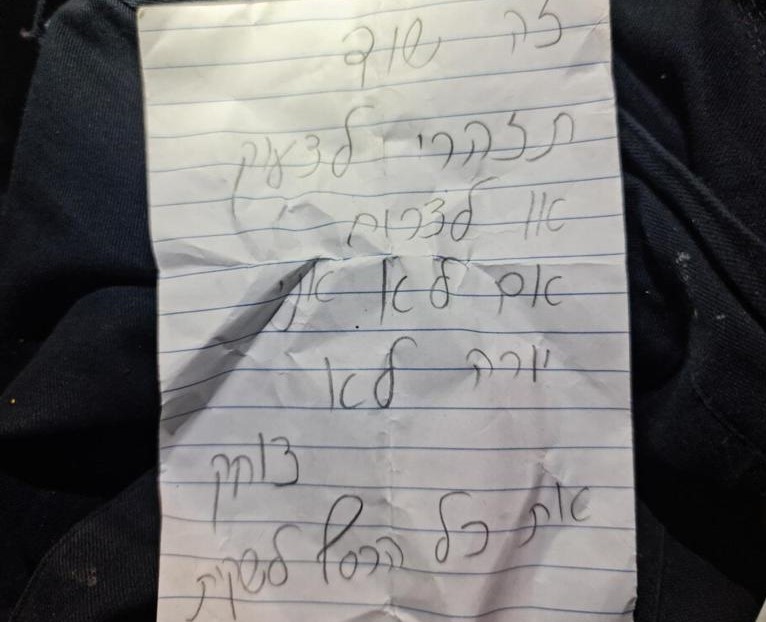 זה שוד
תזהרי לצעוק
או לצרוח
אם לא אני
יורה לא
צוחק
את כל הכסף לשקית